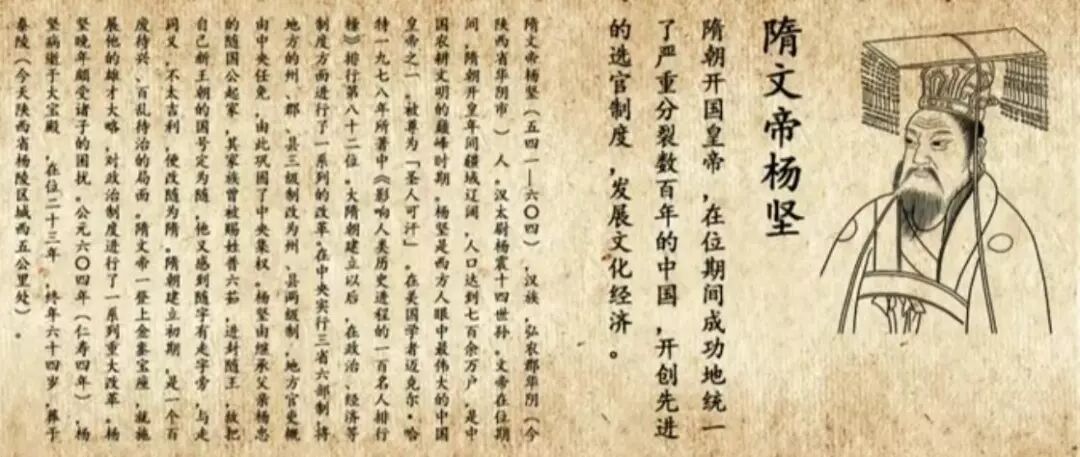 隋文帝杨坚
隋朝开国皇帝，在位期间成功地统一
了严重分裂数百年的中国，开创先进
的选官制度，发展文化经济。
隋文帝杨坚（五四一—六〇四），汉族，弘农郡华阴（今
陕西省华阴市）人。汉太尉杨震十四世孙。文帝在位期
间，隋朝开皇年间疆域辽阔，人口达到七百余万户，是中
国农耕文明的巅峰时期。杨坚是西方人眼中最伟大的中国
皇帝之一。被尊为「圣人可汗」。在美国学者迈克尔·哈
特一九七八年所著中《影响人类历史进程的一百名人排行
榜》排行第八十二位。大隋朝建立以后，在政治、经济等
制度方面进行了一系列的改革。在中央实行三省六部制，将
地方的州、郡、县三级制改为州、县两级制，地方官吏概
由中央任免，由此巩固了中央集权。杨坚由继承父亲杨忠
的随国公起家，其家族曾被赐姓普六茹，进封随王，故把
自己新王朝的国号定为随，他又感到随字有走字旁，与走
同义，不太吉利，便改随为隋。隋朝建立初期，是一个百
废待兴、百乱待治的局面。隋文帝一登上金銮宝座，就施
展他的雄才大略，对政治制度进行了一系列重大改革。杨
坚晚年颇受诸子的困扰。公元六〇四年（仁寿四年），杨
坚病逝于大宝殿，在位二十三年，终年六十四岁，葬于
泰陵（今天陕西省杨陵区城西五公里处）。